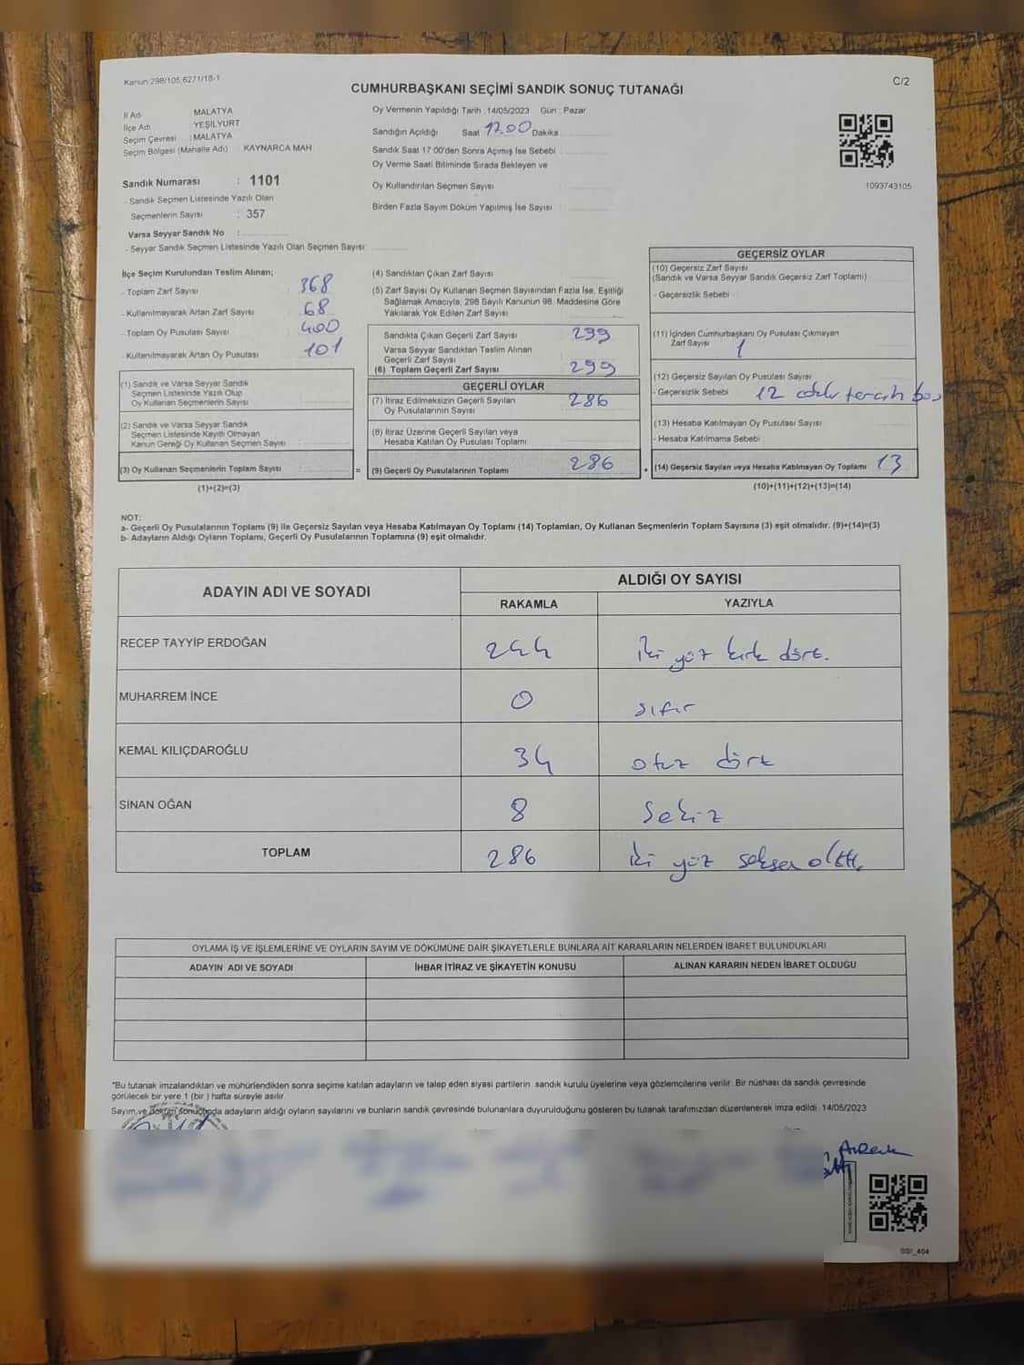 Kanun 298/105,6271/18-1
C/2
CUMHURBAŞKANI SEÇİMİ SANDIK SONUÇ TUTANAĞI
İl Adı : MALATYA
İlçe Adı : YEŞİLYURT
Seçim Çevresi : MALATYA
Seçim Bölgesi (Mahalle Adı) : KAYNARCA MAH
Sandık Numarası : 1101
- Sandık Seçmen Listesinde Yazılı Olan
Seçmenlerin Sayısı : 357
Varsa Seyyar Sandık No :
- Seyyar Sandık Seçmen Listesinde Yazılı Olan Seçmen Sayısı
Oy Vermenin Yapıldığı Tarih : 14/05/2023 Gün : Pazar
Sandığın Açıldığı Saat 17.00 Dakika
Sandık Saat 17:00'den Sonra Açımış İse Sebebi
Oy Verme Saati Bitiminde Sırada Bekleyen ve
Oy Kullandırılan Seçmen Sayısı
Birden Fazla Sayım Döküm Yapılmış İse Sayısı
1093743105
İlçe Seçim Kurulundan Teslim Alınan;
- Toplam Zarf Sayısı 368
- Kullanılmayarak Artan Zarf Sayısı 68
- Toplam Oy Pusulası Sayısı 400
- Kullanılmayarak Artan Oy Pusulası 101
(1) Sandık ve Varsa Seyyar Sandık
Seçmen Listesinde Yazılı Olup
Oy Kullanan Seçmenlerin Sayısı
(2) Sandık ve Varsa Seyyar Sandık
Seçmen Listesinde Kayıtlı Olmayan
Kanun Gereği Oy Kullanan Seçmen Sayısı
(3) Oy Kullanan Seçmenlerin Toplam Sayısı
(1)+(2)=(3)
=
(4) Sandıktan Çıkan Zarf Sayısı
(5) Zarf Sayısı Oy Kullanan Seçmen Sayısından Fazla İse, Eşitliği
Sağlamak Amacıyla, 298 Sayılı Kanunun 98. Maddesine Göre
Yakılarak Yok Edilen Zarf Sayısı
Sandıkta Çıkan Geçerli Zarf Sayısı 299
Varsa Seyyar Sandıktan Teslim Alınan
Geçerli Zarf Sayısı
(6) Toplam Geçerli Zarf Sayısı 299
GEÇERLİ OYLAR
(7) İtiraz Edilmeksizin Geçerli Sayılan
Oy Pusulalarının Sayısı 286
(8) İtiraz Üzerine Geçerli Sayılan veya
Hesaba Katılan Oy Pusulası Toplamı
(9) Geçerli Oy Pusulalarının Toplamı 286
GEÇERSİZ OYLAR
(10) Geçersiz Zarf Sayısı
(Sandık ve Varsa Seyyar Sandık Geçersiz Zarf Toplamı)
- Geçersizlik Sebebi
(11) İçinden Cumhurbaşkanı Oy Pusulası Çıkmayan
Zarf Sayısı 1
(12) Geçersiz Sayılan Oy Pusulası Sayısı
- Geçersizlik Sebebi 12
(13) Hesaba Katılmayan Oy Pusulası Sayısı
- Hesaba Katılmama Sebebi
(14) Geçersiz Sayılan veya Hesaba Katılmayan Oy Toplamı 13
(10)+(11)+(12)+(13)=(14)
NOT:
a- Geçerli Oy Pusulalarının Toplamı (9) ile Geçersiz Sayılan veya Hesaba Katılmayan Oy Toplamı (14) Toplamları, Oy Kullanan Seçmenlerin Toplam Sayısına (3) eşit olmalıdır. (9)+(14)=(3)
b- Adayların Aldığı Oyların Toplamı, Geçerli Oy Pusulalarının Toplamına (9) eşit olmalıdır.
ADAYIN ADI VE SOYADI
ALDIĞI OY SAYISI
RAKAMLA YAZIYLA
RECEP TAYYİP ERDOĞAN 244 iki yüz kırk dört.
MUHARREM İNCE 0 sıfır
KEMAL KILIÇDAROĞLU 34 otuz dört
SİNAN OĞAN 8 Sekiz
TOPLAM 286 iki yüz seksen altı.
OYLAMA İŞ VE İŞLEMLERİNE VE OYLARIN SAYIM VE DÖKÜMÜNE DAİR ŞİKAYETLERLE BUNLARA AİT KARARLARIN NELERDEN İBARET BULUNDUKLARI
ADAYIN ADI VE SOYADI İHBAR İTİRAZ VE ŞİKAYETİN KONUSU ALINAN KARARIN NEDEN İBARET OLDUĞU
*Bu tutanak imzalandıktan ve mühürlendikten sonra seçime katılan adayların ve talep eden siyasi partilerin sandık kurulu üyelerine veya gözlemcilerine verilir. Bir nüshası da sandık çevresinde
görülecek bir yere 1 (bir) hafta süreyle asılır.
Sayım ve döküm sonucunda adayların aldığı oyların sayılarını ve bunların sandık çevresinde bulunanlara duyurulduğunu gösteren bu tutanak tarafımızdan düzenlenerek imza edildi. 14/05/2023
SSI_404